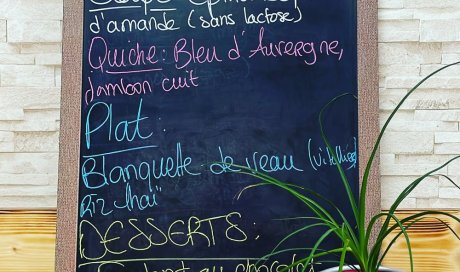 d'amande (sans lactose)
Quiche: Bleu d'Auvergne,
Jambon cuit
Plat:
Blanquette de veau
Riz thaï
DESSERTS:
au chocolat